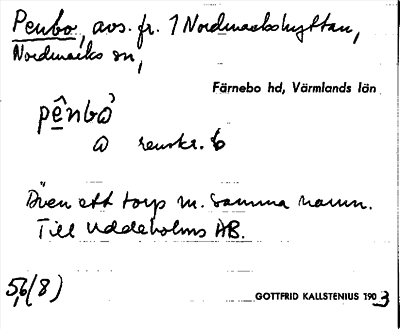 Penbo, avs. fr. 1 Nordmarkshyttan,
Nordmarks sn,
Färnebo hd, Värmlands län
pênbò
a renskr. b
Även ett torp m. samma namn.
Till Uddeholms AB.
5,6(8)
GOTTFRID KALLSTENIUS 1903